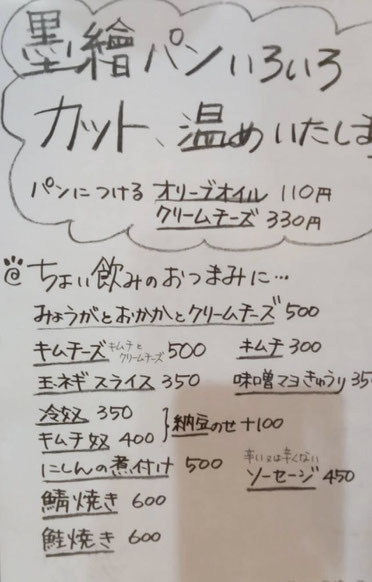 墨繪パンいろいろ
カット、温めいたしま
パンにつける オリーブオイル 110円
クリームチーズ 330円
@ ちょい飲みのおつまみに…
みょうがとおかかとクリームチーズ 500
キムチーズ キムチと クリームチーズ 500 キムチ 300
玉ネギスライス 350 味噌マヨきゅうり 350
冷奴 350
キムチ奴 400 } 納豆のせ +100
にしんの煮付け 500 辛い又は辛くない ソーセージ 450
鯖焼き 600
鮭焼き 600